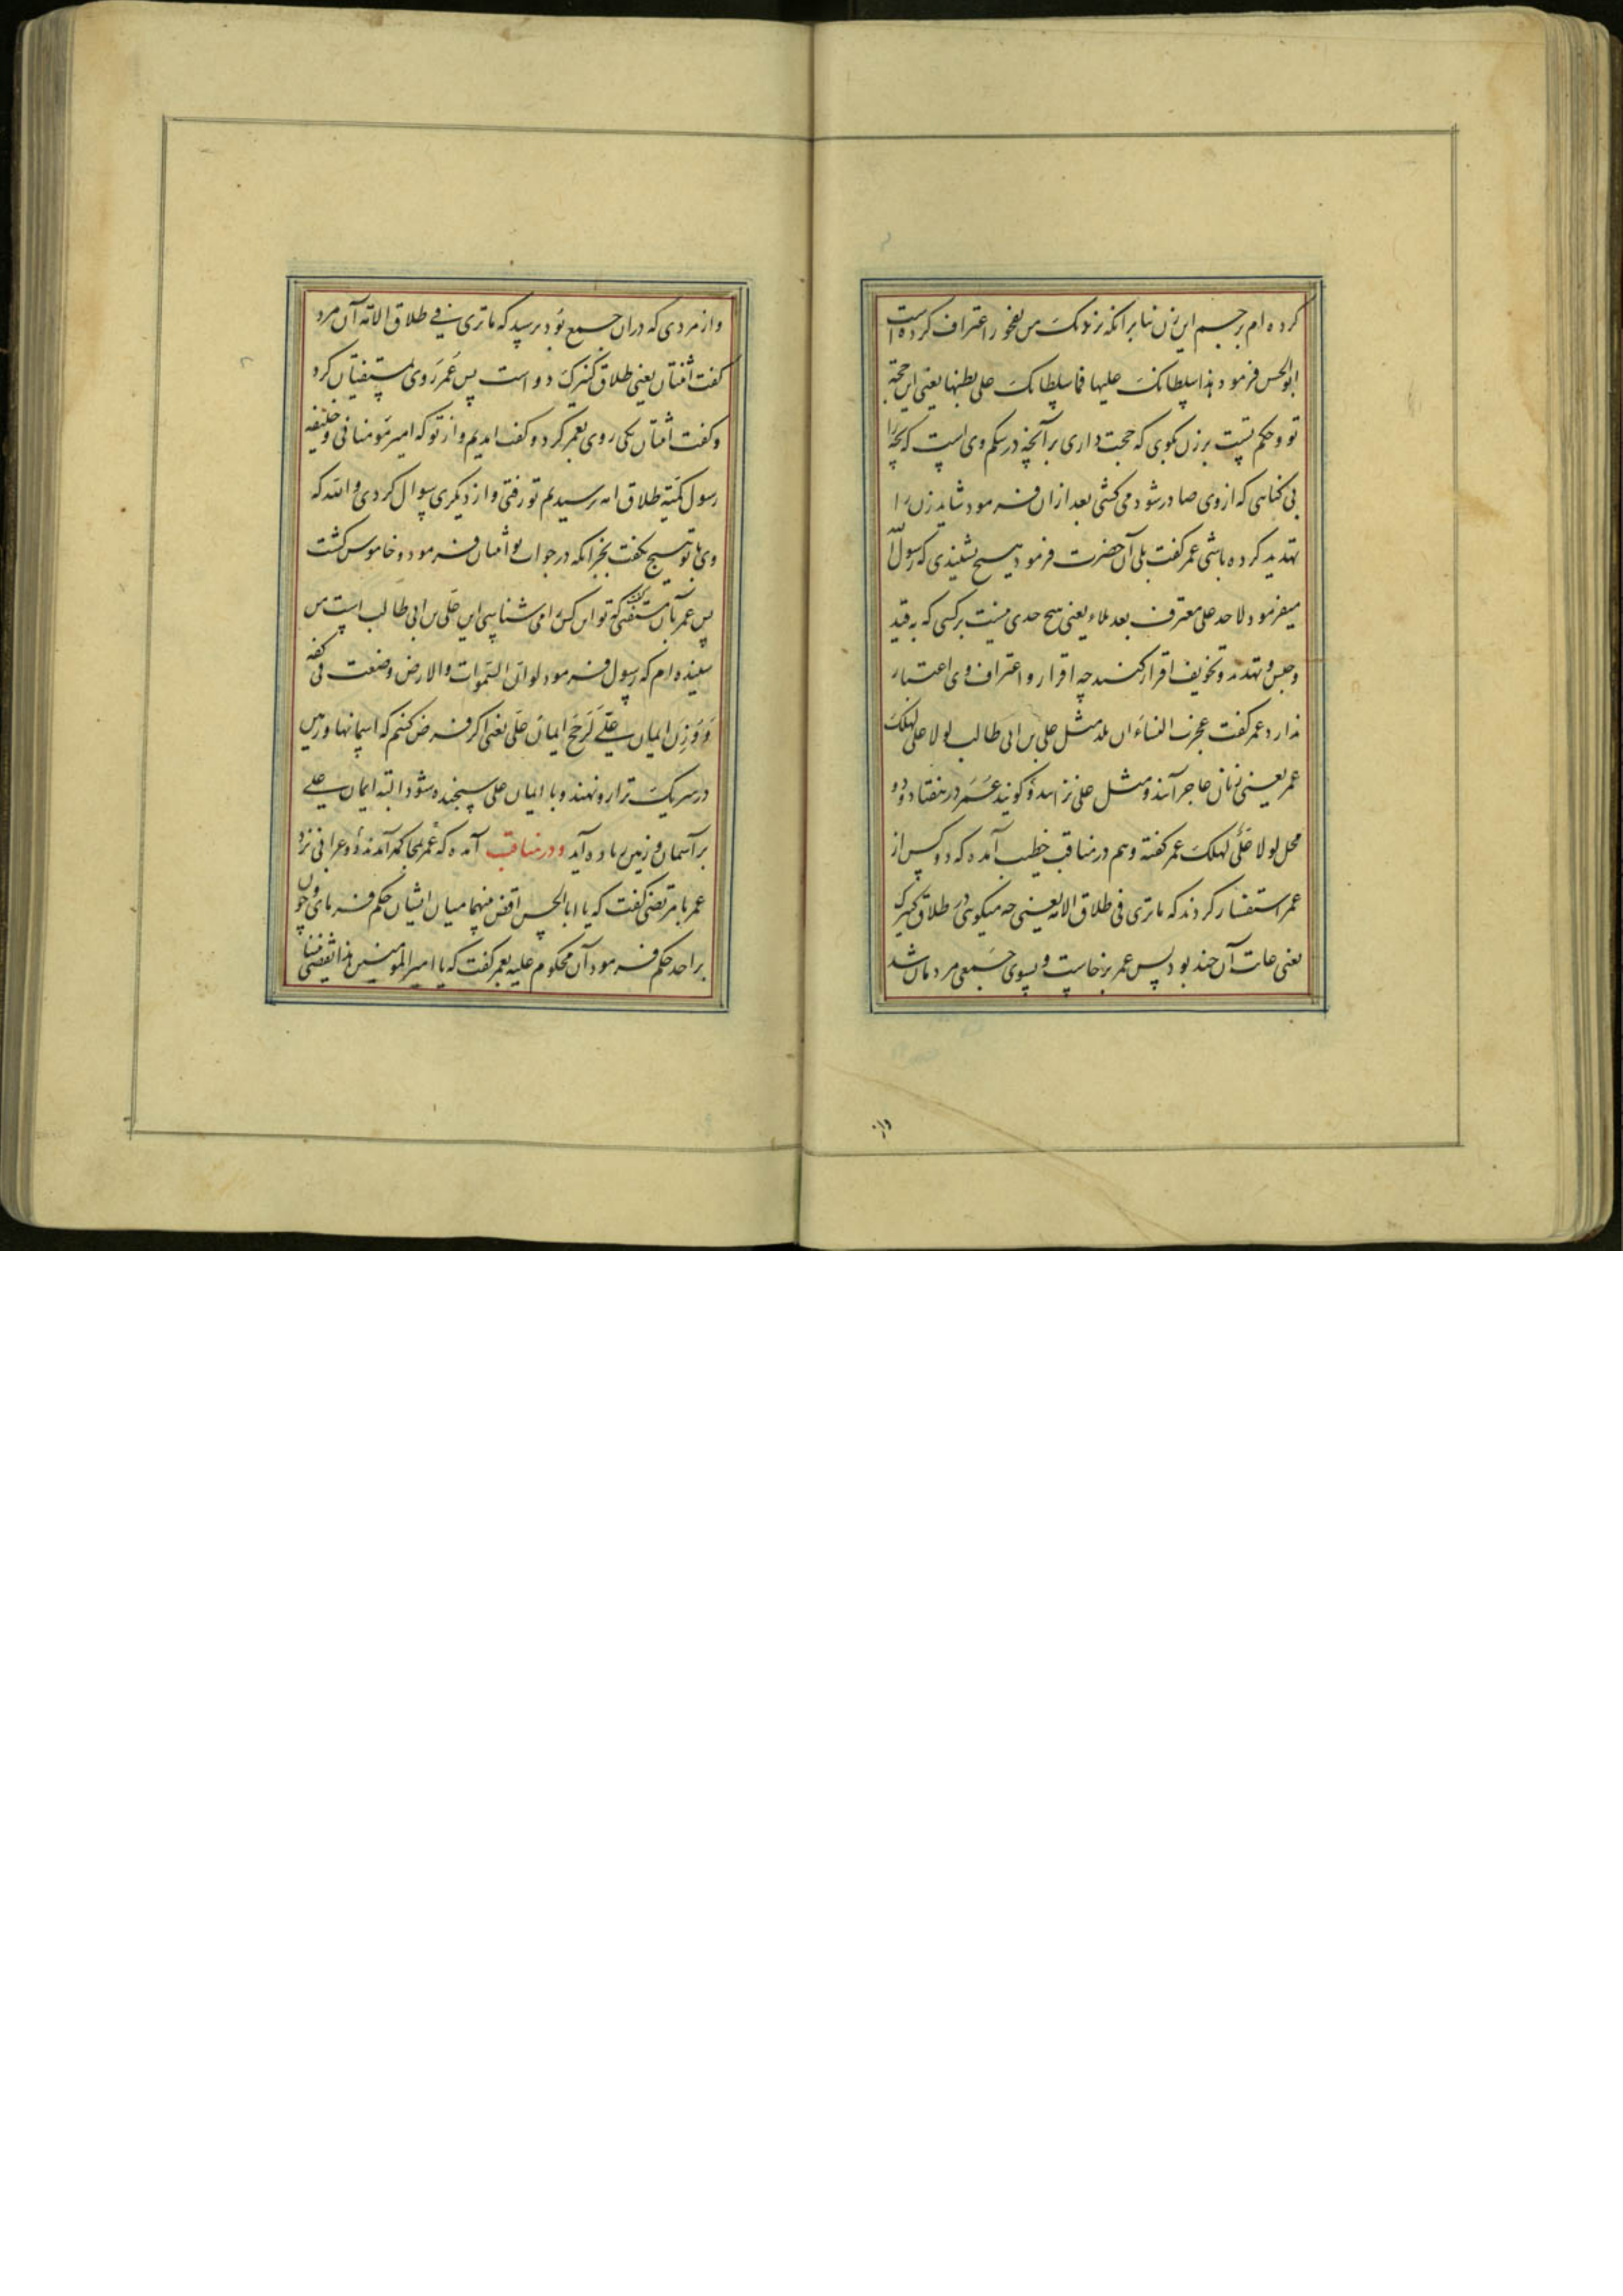 کرده ام برجم این زن بنابر انکه نزدیک من بفجور اعتراف کرده است
ابوالحسن فرمود هذا سلطانک علیها فما سلطانک علی بطنها یعنی این حجة
تو و حکم تست بر زن بکوی که حجت داری بر آنچه در شکم وی است که بچه را
بی کناهی که از وی صادر شود می کشی بعد ازان فرمود شاید زن را
تهدید کرده باشی عمر کفت بلی آن حضرت فرمود هیچ نشنیدی که رسول الله
میفرمود لا حد علی معترف بعد بلاء یعنی هیچ حدی نیست بر کسی که به قید
و حبس و تهدید و تخویف اقرار کند چه اقرار و اعتراف وی اعتبار
ندارد عمر کفت عجزت النساء ان تلد مثل علی بن ابی طالب لولا علی لهلک
عمر یعنی زنان عاجز آیند و مثل علی نزایند و کویند عمر در هفتاد و دو
محل لولا علی لهلک عمر کفته و هم در مناقب خطیب آمده که دو کس از
عمر استفسار کردند که ما تری فی طلاق الامة یعنی چه میکویی در طلاق کنیزک
یعنی غایت آن چند بود پس عمر برخاست و بسوی جمعی مردمان شد
واز
واز مردی که دران جمع بود پرسید که ما تری فی طلاق الامة آن مرد
کفت اثنتان یعنی طلاق کنیزک دو است پس عمر روی بمستفتیان کرد
و کفت اثنتان یکی روی بعمر کرد و کفت امدیم و از تو که امیر مومنانی و خلیفه
رسول طلاق امه پرسیدیم تو رفتی و از دیکری سوال کردی والله که
وی با تو هیچ نکفت بجز انکه در جواب تو اثنتان فرمود و خاموش کشت
پس عمر بآن مستفتی کفت که تو این کس را می شناسی این علی بن ابی طالب است من
شنیده ام که رسول فرمود لو ان السموات والارض وضعت فی کفه
و وزن ایمان علی لرجح ایمان علی یعنی اکر فرض کنم که اسمانها و زمین
در سر یک ترازو نهند و با ایمان علی سنجیده شود البته ایمان علی
بر آسمان و زمین زیاده آید و در مناقب آمده که عمر بمحاکمه آمدند دو اعرابی نزد
عمر با مرتضی کفت که یا ابا الحسن اقض بینهما میان ایشان حکم فرمای و چون
بر احد حکم فرمود آن محکوم علیه بعمر کفت که یا امیرالمومنین هذا یقضی بیننا